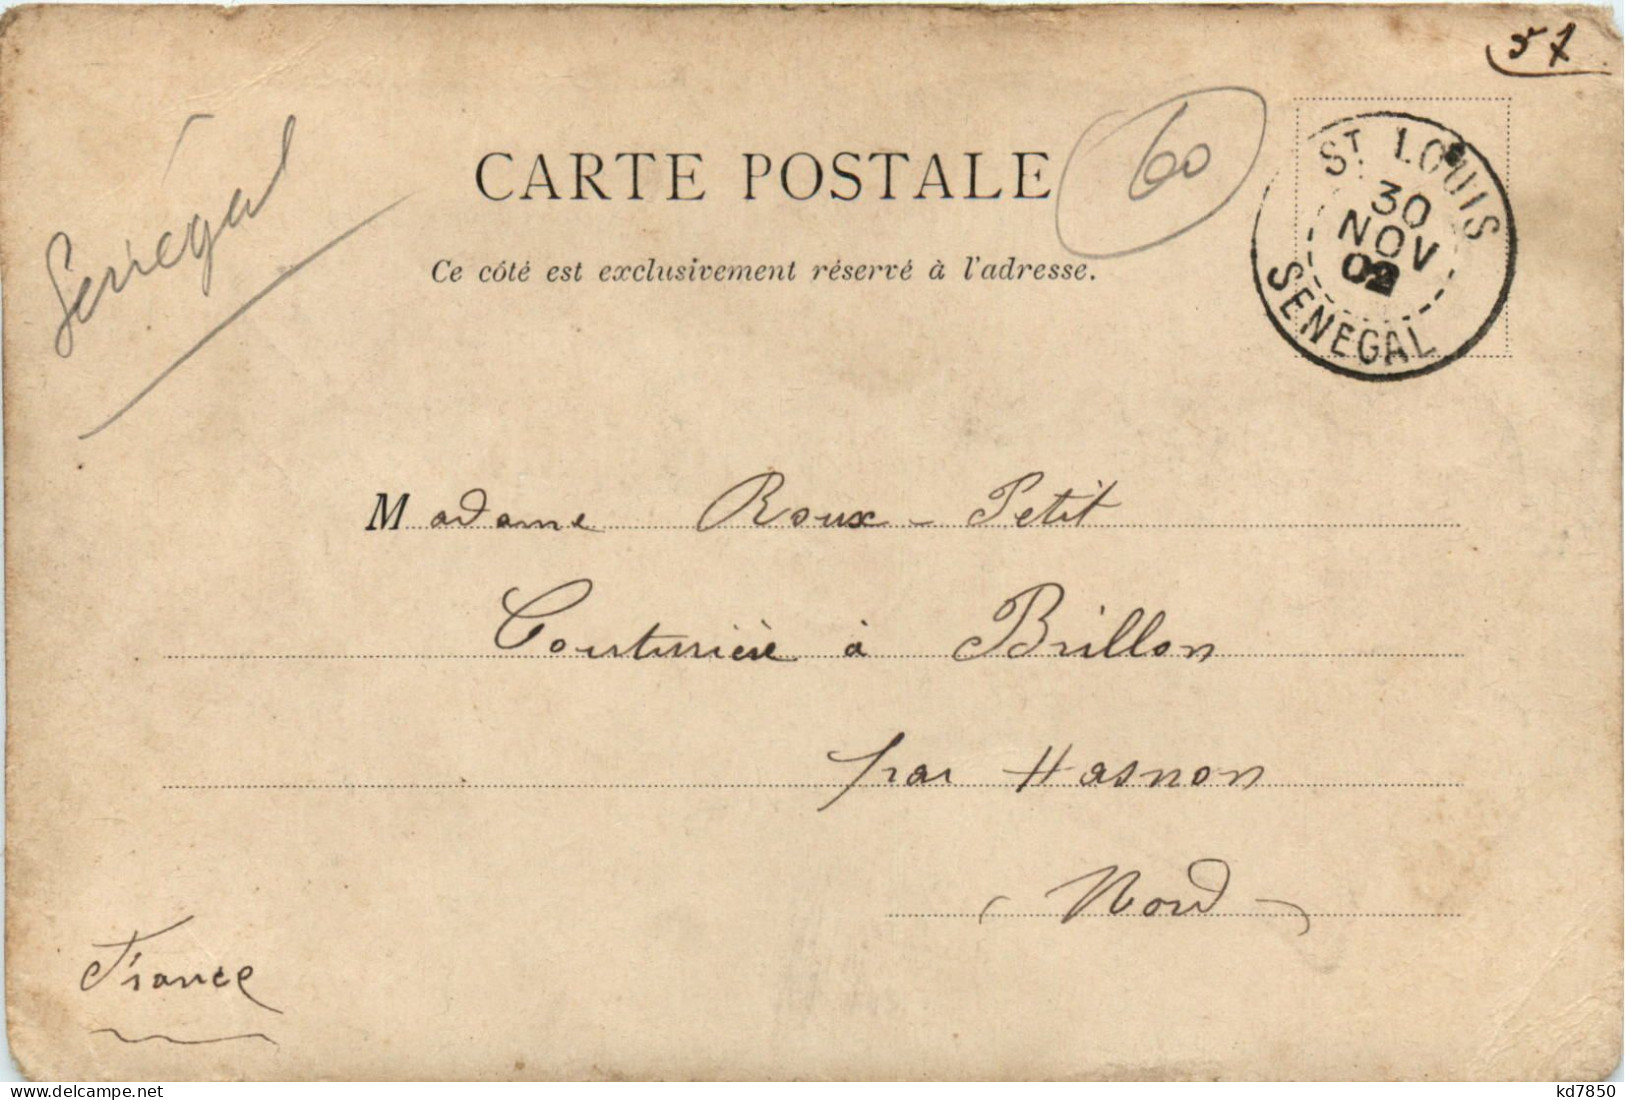 57
Senégal
CARTE POSTALE
60
Ce côté est exclusivement réservé à l'adresse.
ST LOUIS
30
NOV
02
SENEGAL
Madame Roux - Petit
Couturière à Brillon
par Hasnon
(Nord)
France
Tickets-Senegal
kd7850